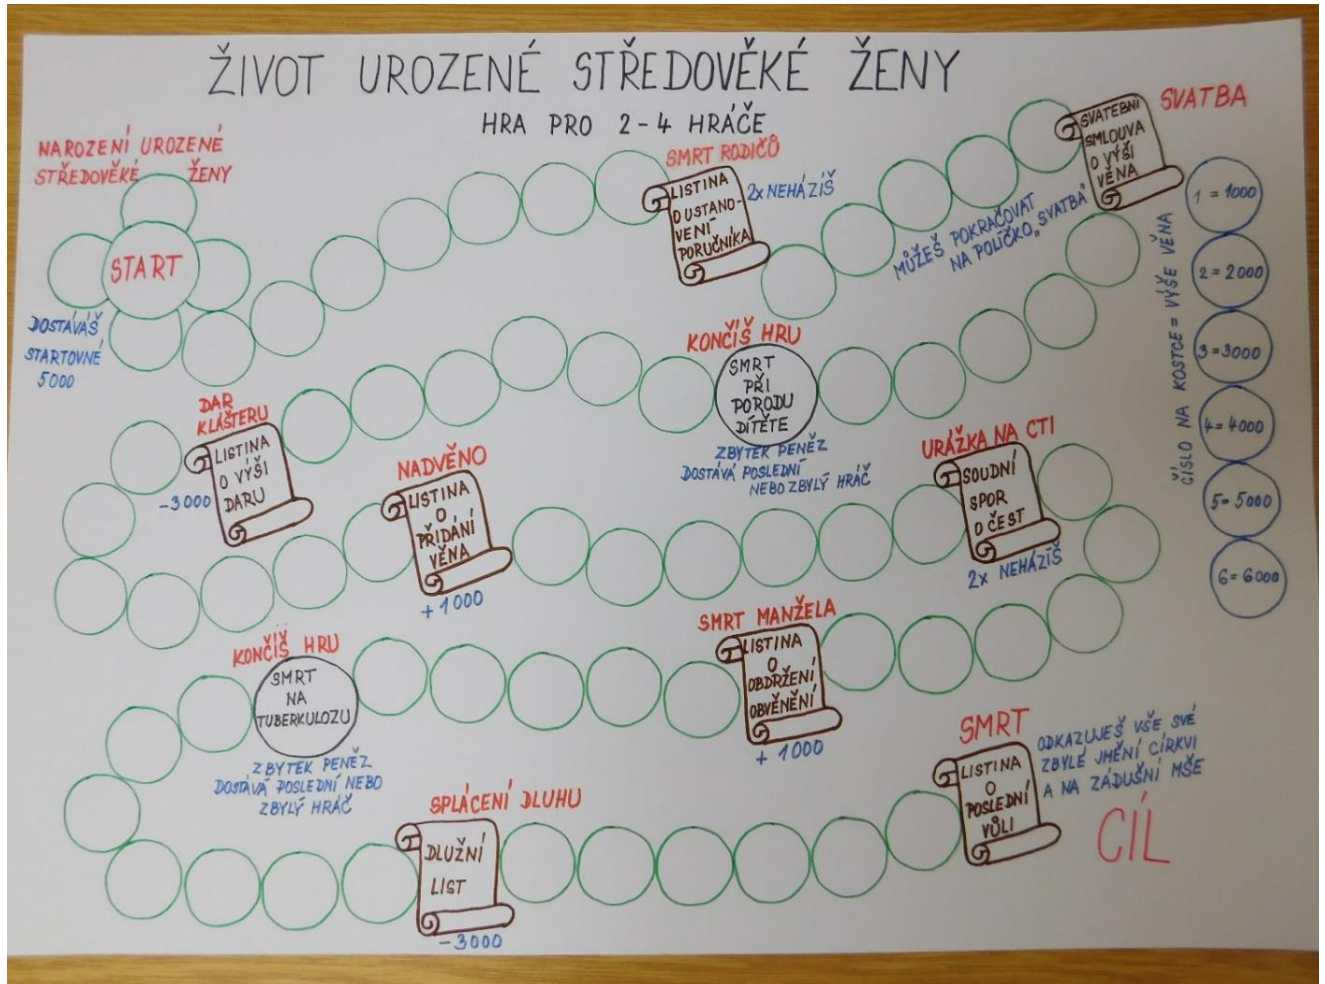 ŽIVOT UROZENÉ STŘEDOVĚKÉ ŽENY
HRA PRO 2-4 HRÁČE
NAROZENÍ UROZENÉ
STŘEDOVĚKÉ ŽENY
START
DOSTÁVÁŠ
STARTOVNÉ
5000
SMRT RODIČŮ
LISTINA
O USTANO-
VENÍ
PORUČNÍKA
2x NEHÁZÍŠ
MŮŽEŠ POKRAČOVAT
NA POLÍČKO „SVATBA"
SVATBA
SVATEBNÍ
SMLOUVA
O VÝŠI
VĚNA
ČÍSLO NA KOSTCE = VÝŠE VĚNA
1 = 1000
2 = 2000
3 = 3000
4 = 4000
5 = 5000
6 = 6000
KONČÍŠ HRU
SMRT
PŘI
PORODU
DÍTĚTE
ZBYTEK PENĚZ
DOSTÁVÁ POSLEDNÍ
NEBO ZBYLÝ HRÁČ
DAR
KLÁŠTERU
LISTINA
O VÝŠI
DARU
-3000
NADVĚNO
LISTINA
O
PŘIDÁNÍ
VĚNA
+1000
URÁŽKA NA CTI
SOUDNÍ
SPOR
O ČEST
2x NEHÁZÍŠ
SMRT MANŽELA
LISTINA
O
OBDRŽENÍ
OBVĚNĚNÍ
+ 1000
KONČÍŠ HRU
SMRT
NA
TUBERKULOZU
ZBYTEK PENĚZ
DOSTÁVÁ POSLEDNÍ NEBO
ZBYLÝ HRÁČ
SPLÁCENÍ DLUHU
DLUŽNÍ
LIST
-3000
SMRT
LISTINA
O
POSLEDNÍ
VŮLI
ODKAZUJEŠ VŠE SVÉ
ZBYLÉ JMĚNÍ CÍRKVI
A NA ZÁDUŠNÍ MŠE
CÍL